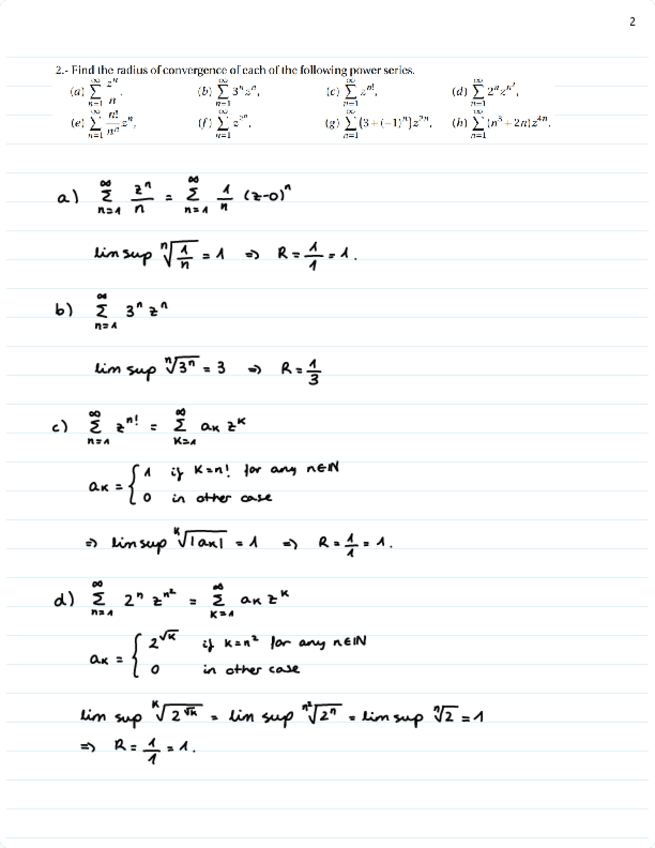 2
2.- Find the radius of convergence of each of the following power series.
(a) ∑_{n=1}^{∞} z^n/n, (b) ∑_{n=1}^{∞} 3^n z^n, (c) ∑_{n=1}^{∞} z^{n!}, (d) ∑_{n=1}^{∞} 2^n z^{n^2},
(e) ∑_{n=1}^{∞} n!/n^n z^n, (f) ∑_{n=1}^{∞} z^{3^n}, (g) ∑_{n=1}^{∞} (3+(−1)^n) z^{2n}, (h) ∑_{n=1}^{∞} (n^3+2n) z^{4n}.
a) ∑_{n=1}^{∞} z^n/n = ∑_{n=1}^{∞} 1/n (z-0)^n
lim sup ⁿ√(1/n) = 1 ⇒ R = 1/1 = 1.
b) ∑_{n=1}^{∞} 3^n z^n
lim sup ⁿ√(3^n) = 3 ⇒ R = 1/3
c) ∑_{n=1}^{∞} z^{n!} = ∑_{k=1}^{∞} a_k z^k
a_k = { 1 if k=n! for any n∈ℕ
0 in other case
⇒ lim sup ᵏ√|a_k| = 1 ⇒ R = 1/1 = 1.
d) ∑_{n=1}^{∞} 2^n z^{n^2} = ∑_{k=1}^{∞} a_k z^k
a_k = { 2^{√k} if k=n² for any n∈ℕ
0 in other case
lim sup ᵏ√(2^{√k}) = lim sup ^{n²}√(2^n) = lim sup ⁿ√2 = 1
⇒ R = 1/1 = 1.